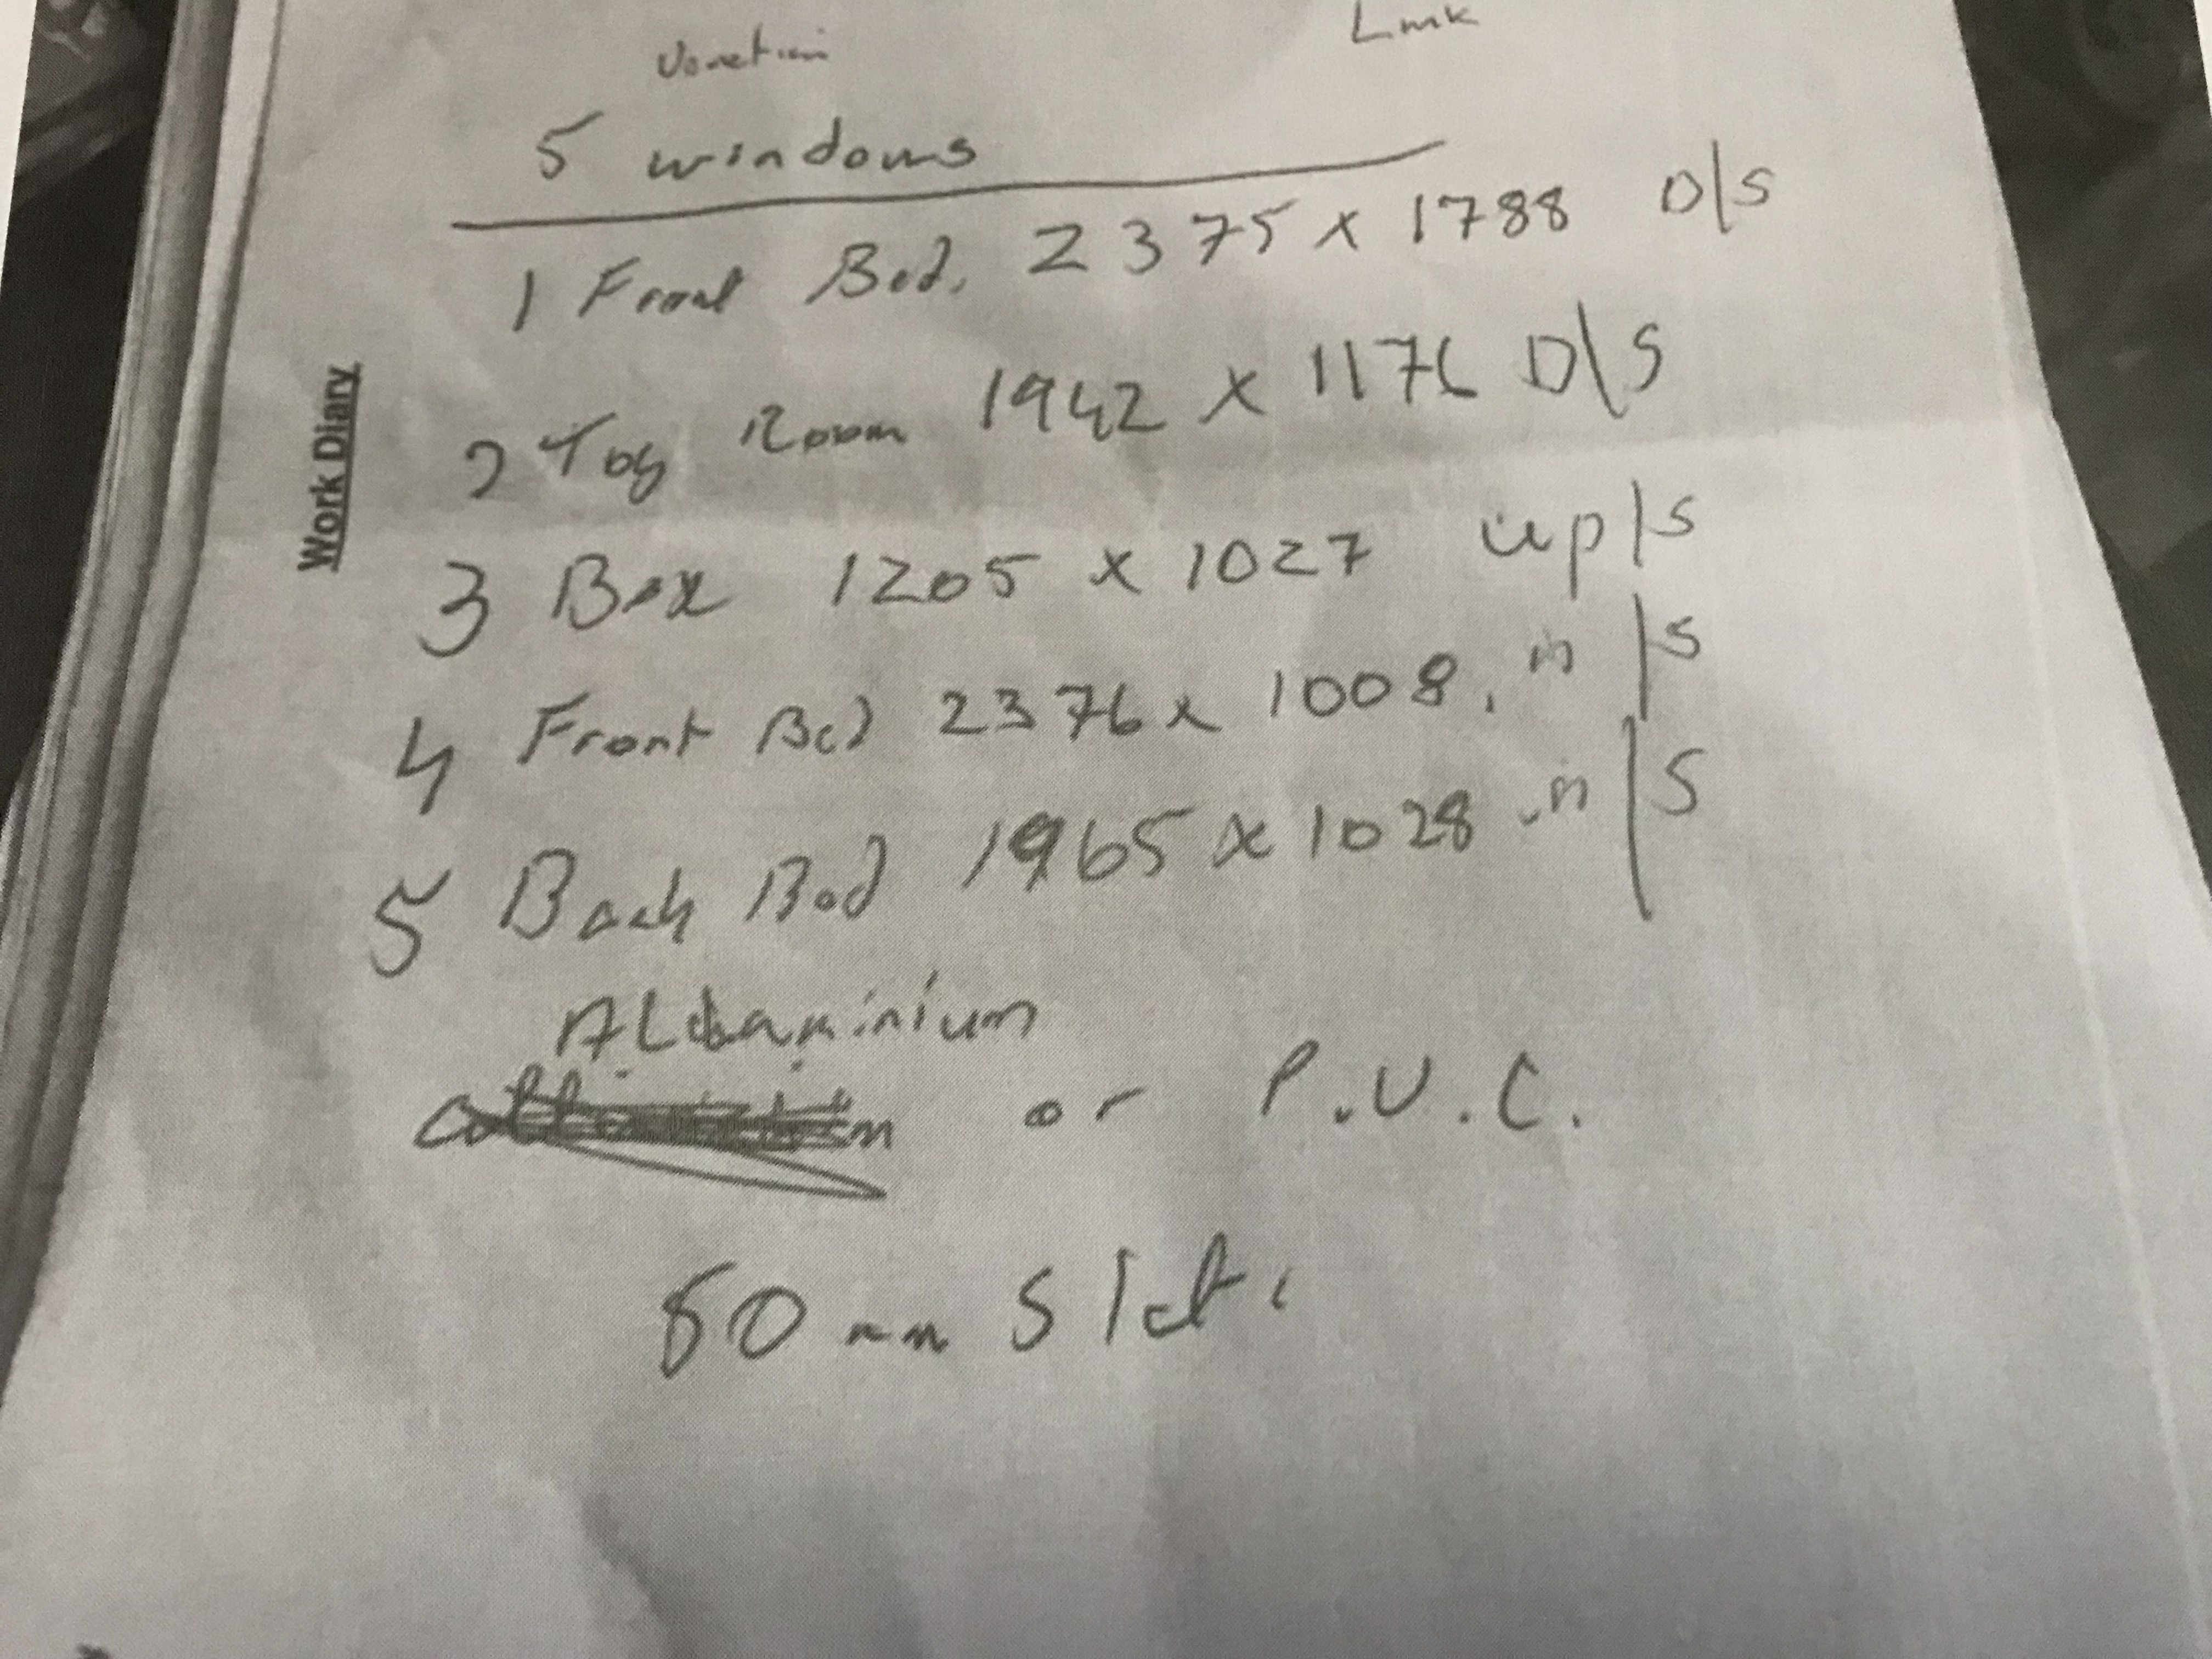 Venetian Lmk
5 windows
1 Front Bed. 2375 x 1788 D/S
2 Toy Room 1942 x 1176 D\S
3 Box 1205 x 1027 up/s
4 Front Bed 2376 x 1008. " /s
5 Back Bed 1965 x 1028 " /S
Work Diary
ALuminium
or P.V.C.
50mm Slats